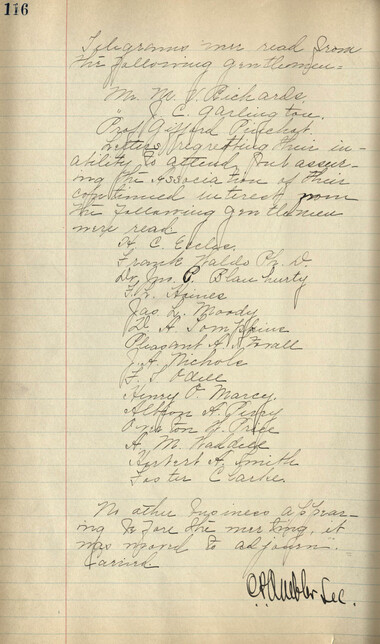 116
Telegrams were read from
the following gentlemen:
Mr. M. V. Richards
" J. C. Garlington.
Prof Gifford Pinchot.
Letters, regretting their in-
ability to attend, but assur-
ing the Association of their
continued interest from
the following gentlemen
were read
H. C. Eccles.
Franck Waldo Ph. D
Dr. Jno. P.
F. W. Haines
Jas. L. Moody
D. A. Tompkins
Pleasant A. Stovall
J. A. Nichols
F. T. Odell
Henry O. Marcy.
A. Perry
Preston
A. M. Waddell
Herbert A. Smith
Foster Clarke.
No other business appear-
ing before the meeting, it
was moved to adjourn.
Carried.
Sec.